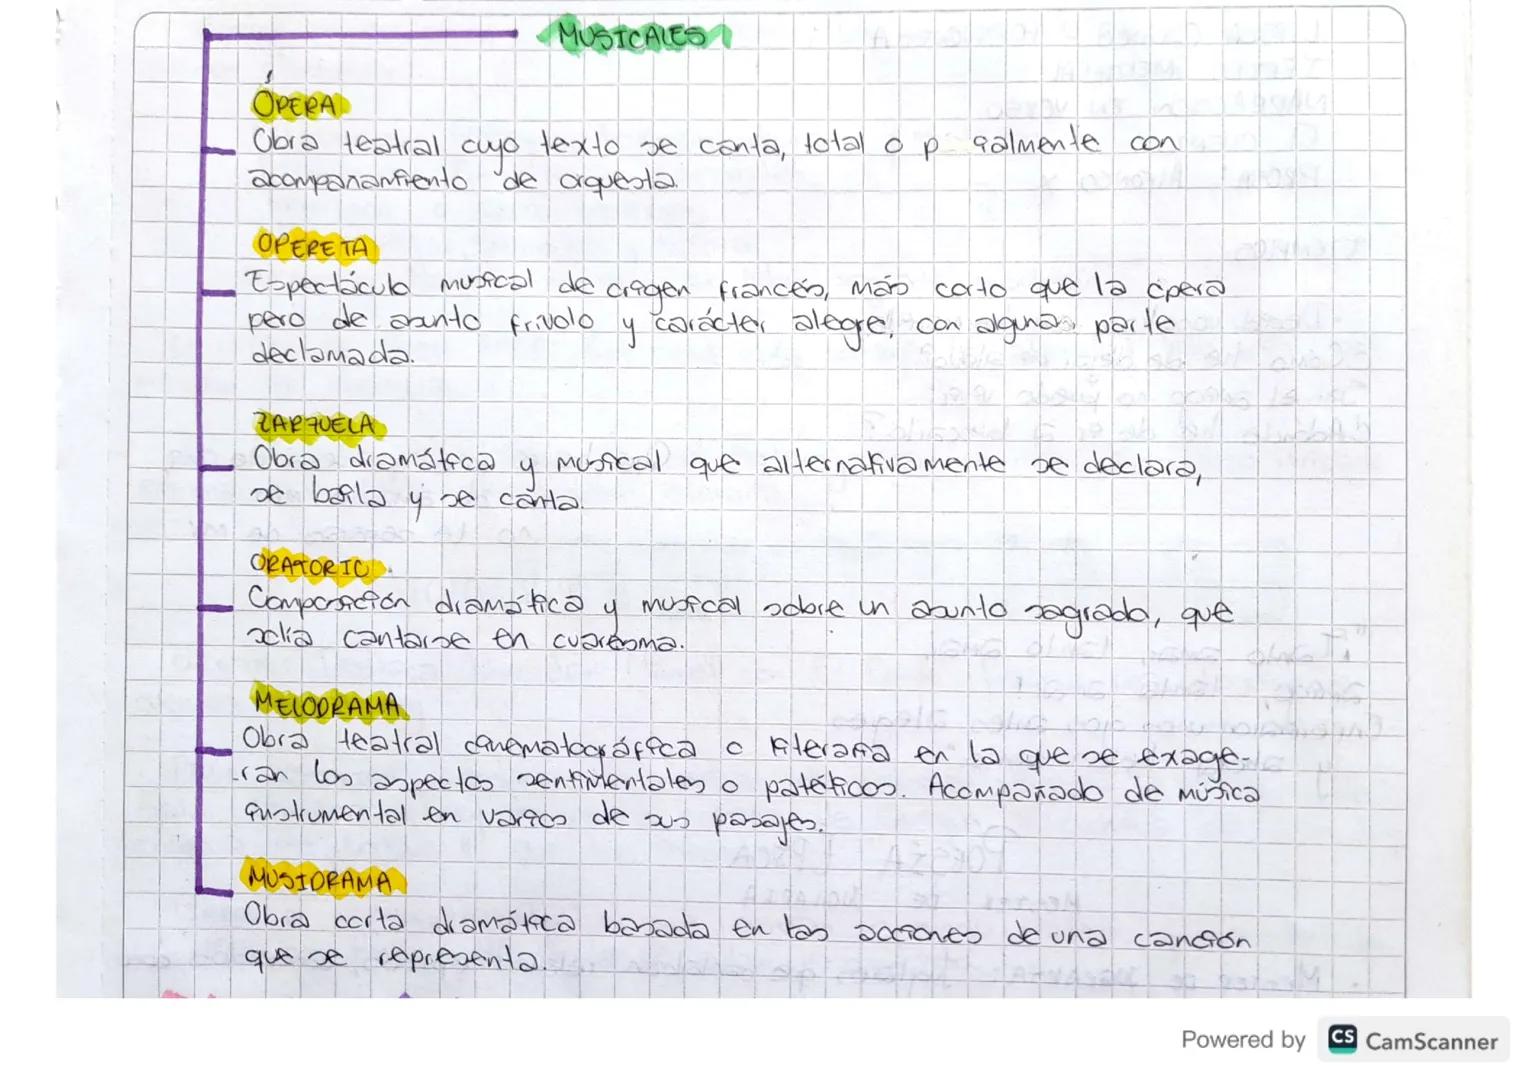 MUSICALES
ÓPERA
Obra teatral cuyo texto se canta, total o p cialmente con
acompañamiento de orquesta.
OPERETA
Espectáculo musical de origen francés, más corto que la ópera
pero de asunto frívolo y carácter alegre, con alguna parte
declamada.
ZARZUELA
Obra dramática y musical que alternativamente se declara,
se baila y se canta.
ORATORIO
Composición dramática y musical sobre un asunto sagrado, que
solía cantarse en cuaresma.
MELODRAMA
Obra teatral cinematográfica o literaria en la que se exage-
ran los aspectos sentimentales o patéticos. Acompañado de música
instrumental en varios de sus pasajes.
MUSIDRAMA
Obra corta dramática basada en las acciones de una canción
que se representa.
Powered by CS CamScanner